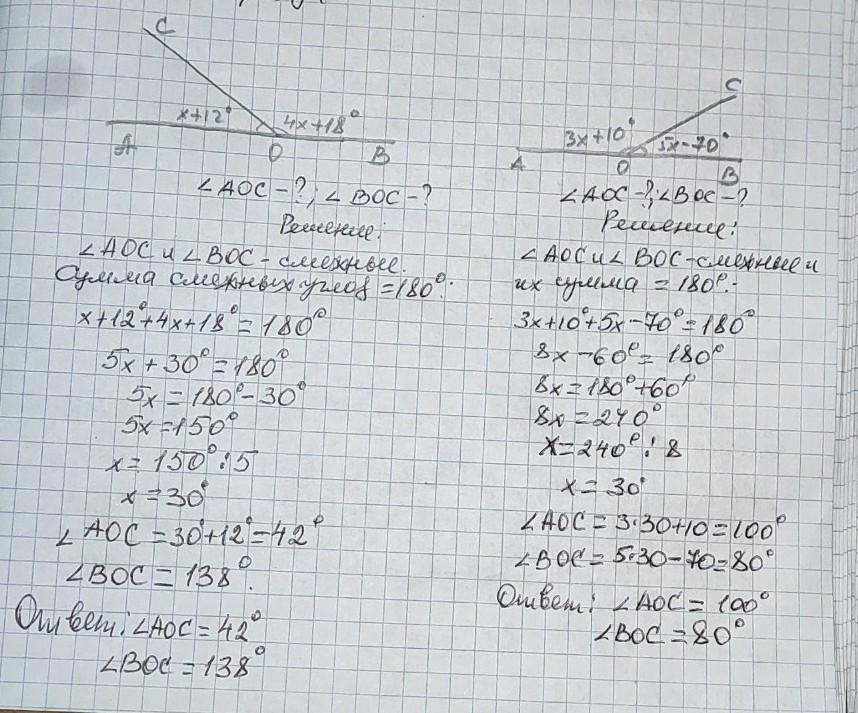 C
x+12° 4x+18°
A O B
∠AOC-?; ∠BOC-?
Решение:
∠AOC и ∠BOC - смежные.
Сумма смежных углов = 180°.
x+12°+4x+18°=180°
5x+30°=180°
5x=180°-30°
5x=150°
x=150°:5
x=30°
∠AOC=30°+12°=42°
∠BOC=138°.
Ответ: ∠AOC=42°
∠BOC=138°
C
3x+10° 5x-70°
A O B
∠AOC-?; ∠BOC-?
Решение:
∠AOC и ∠BOC - смежные и
их сумма = 180°.
3x+10°+5x-70°=180°
8x-60°=180°
8x=180°+60°
8x=240°
x=240°:8
x=30°
∠AOC=3·30+10=100°
∠BOC=5·30-70=80°
Ответ: ∠AOC=100°
∠BOC=80°